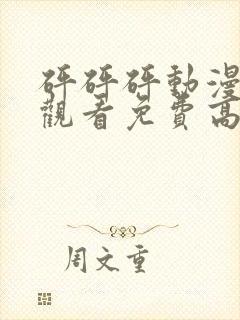 砰砰砰動漫
觀看免費高
周文重